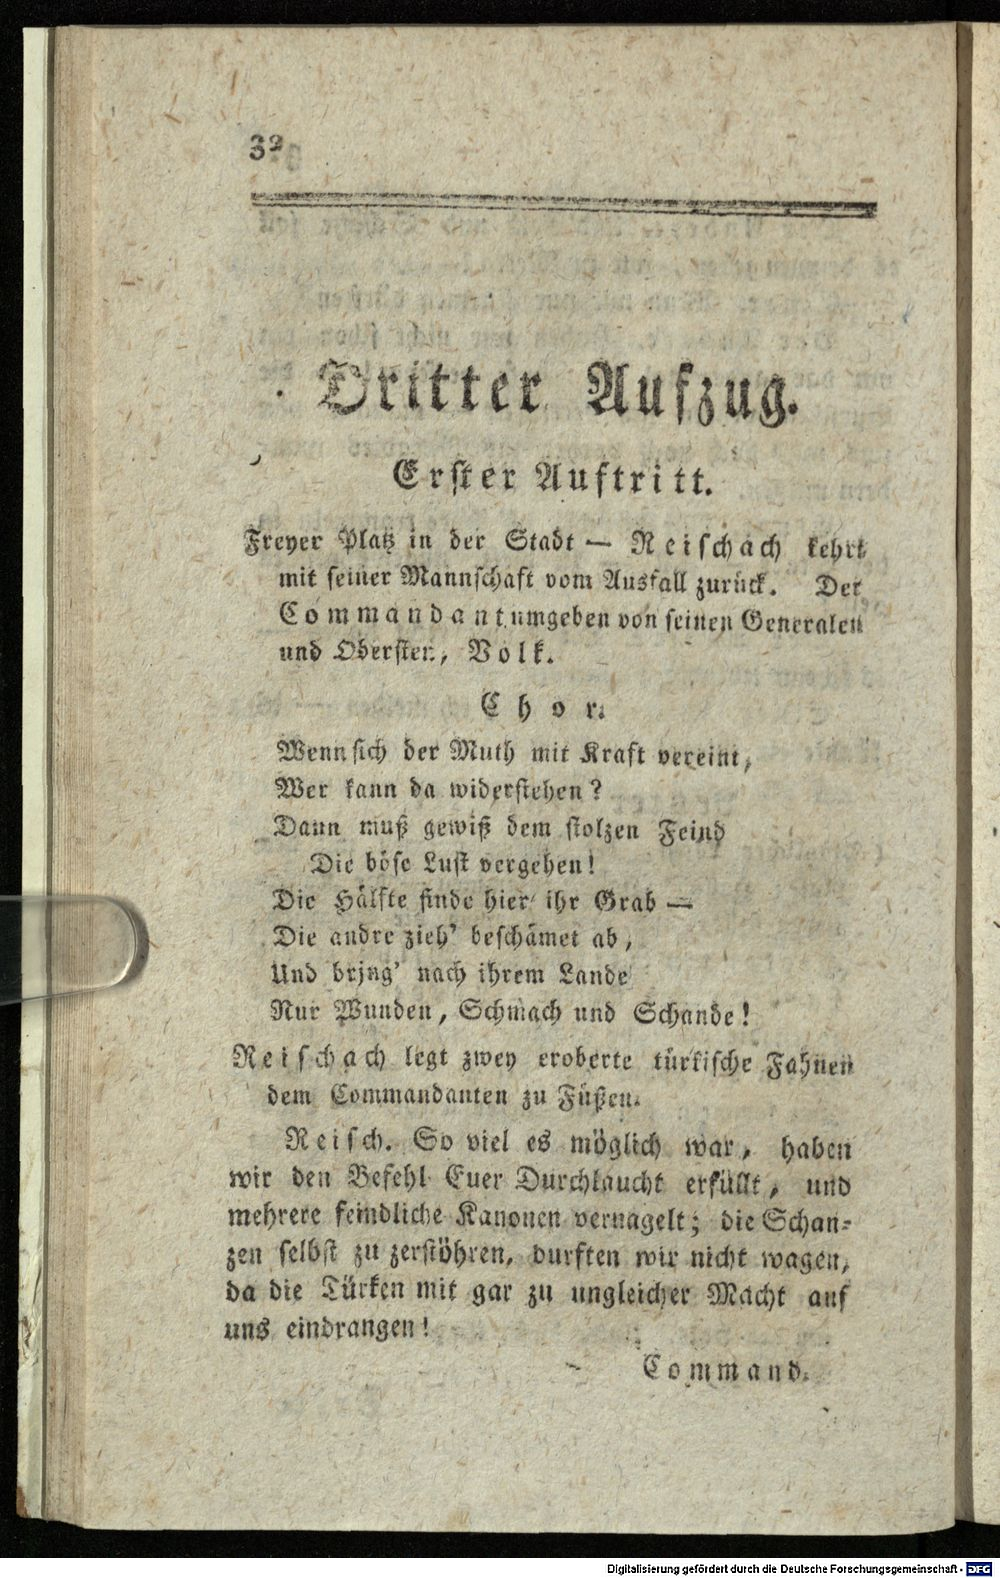 32
Dritter Aufzug.
Erster Auftritt.
Freyer Platz in der Stadt — Reischach kehrt
mit seiner Mannschaft vom Ausfall zurück. Der
Commandant umgeben von seinen Generalen
und Obersten, Volk.
Chor.
Wenn sich der Muth mit Kraft vereint,
Wer kann da widerstehen?
Dann muß gewiß dem stolzen Feind
Die böse Lust vergehen!
Die Hälfte finde hier ihr Grab —
Die andre zieh' beschämet ab,
Und bring' nach ihrem Lande
Nur Wunden, Schmach und Schande!
Reischach legt zwey eroberte türkische Fahnen
dem Commandanten zu Füßen.
Reisch. So viel es möglich war, haben
wir den Befehl Euer Durchlaucht erfüllt, und
mehrere feindliche Kanonen vernagelt; die Schan-
zen selbst zu zerstöhren, durften wir nicht wagen,
da die Türken mit gar zu ungleicher Macht auf
uns eindrangen!
Command.
Digitalisierung gefördert durch die Deutsche Forschungsgemeinschaft - DFG